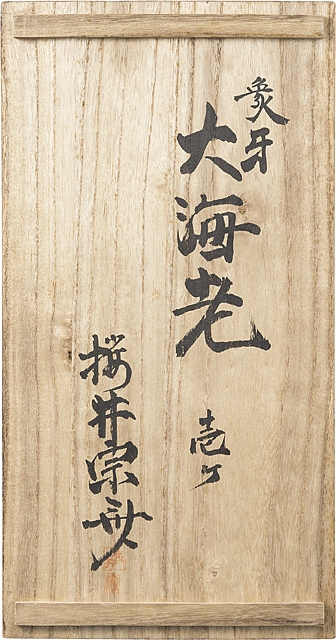 象牙
大海老
壱ヶ
桜井宗